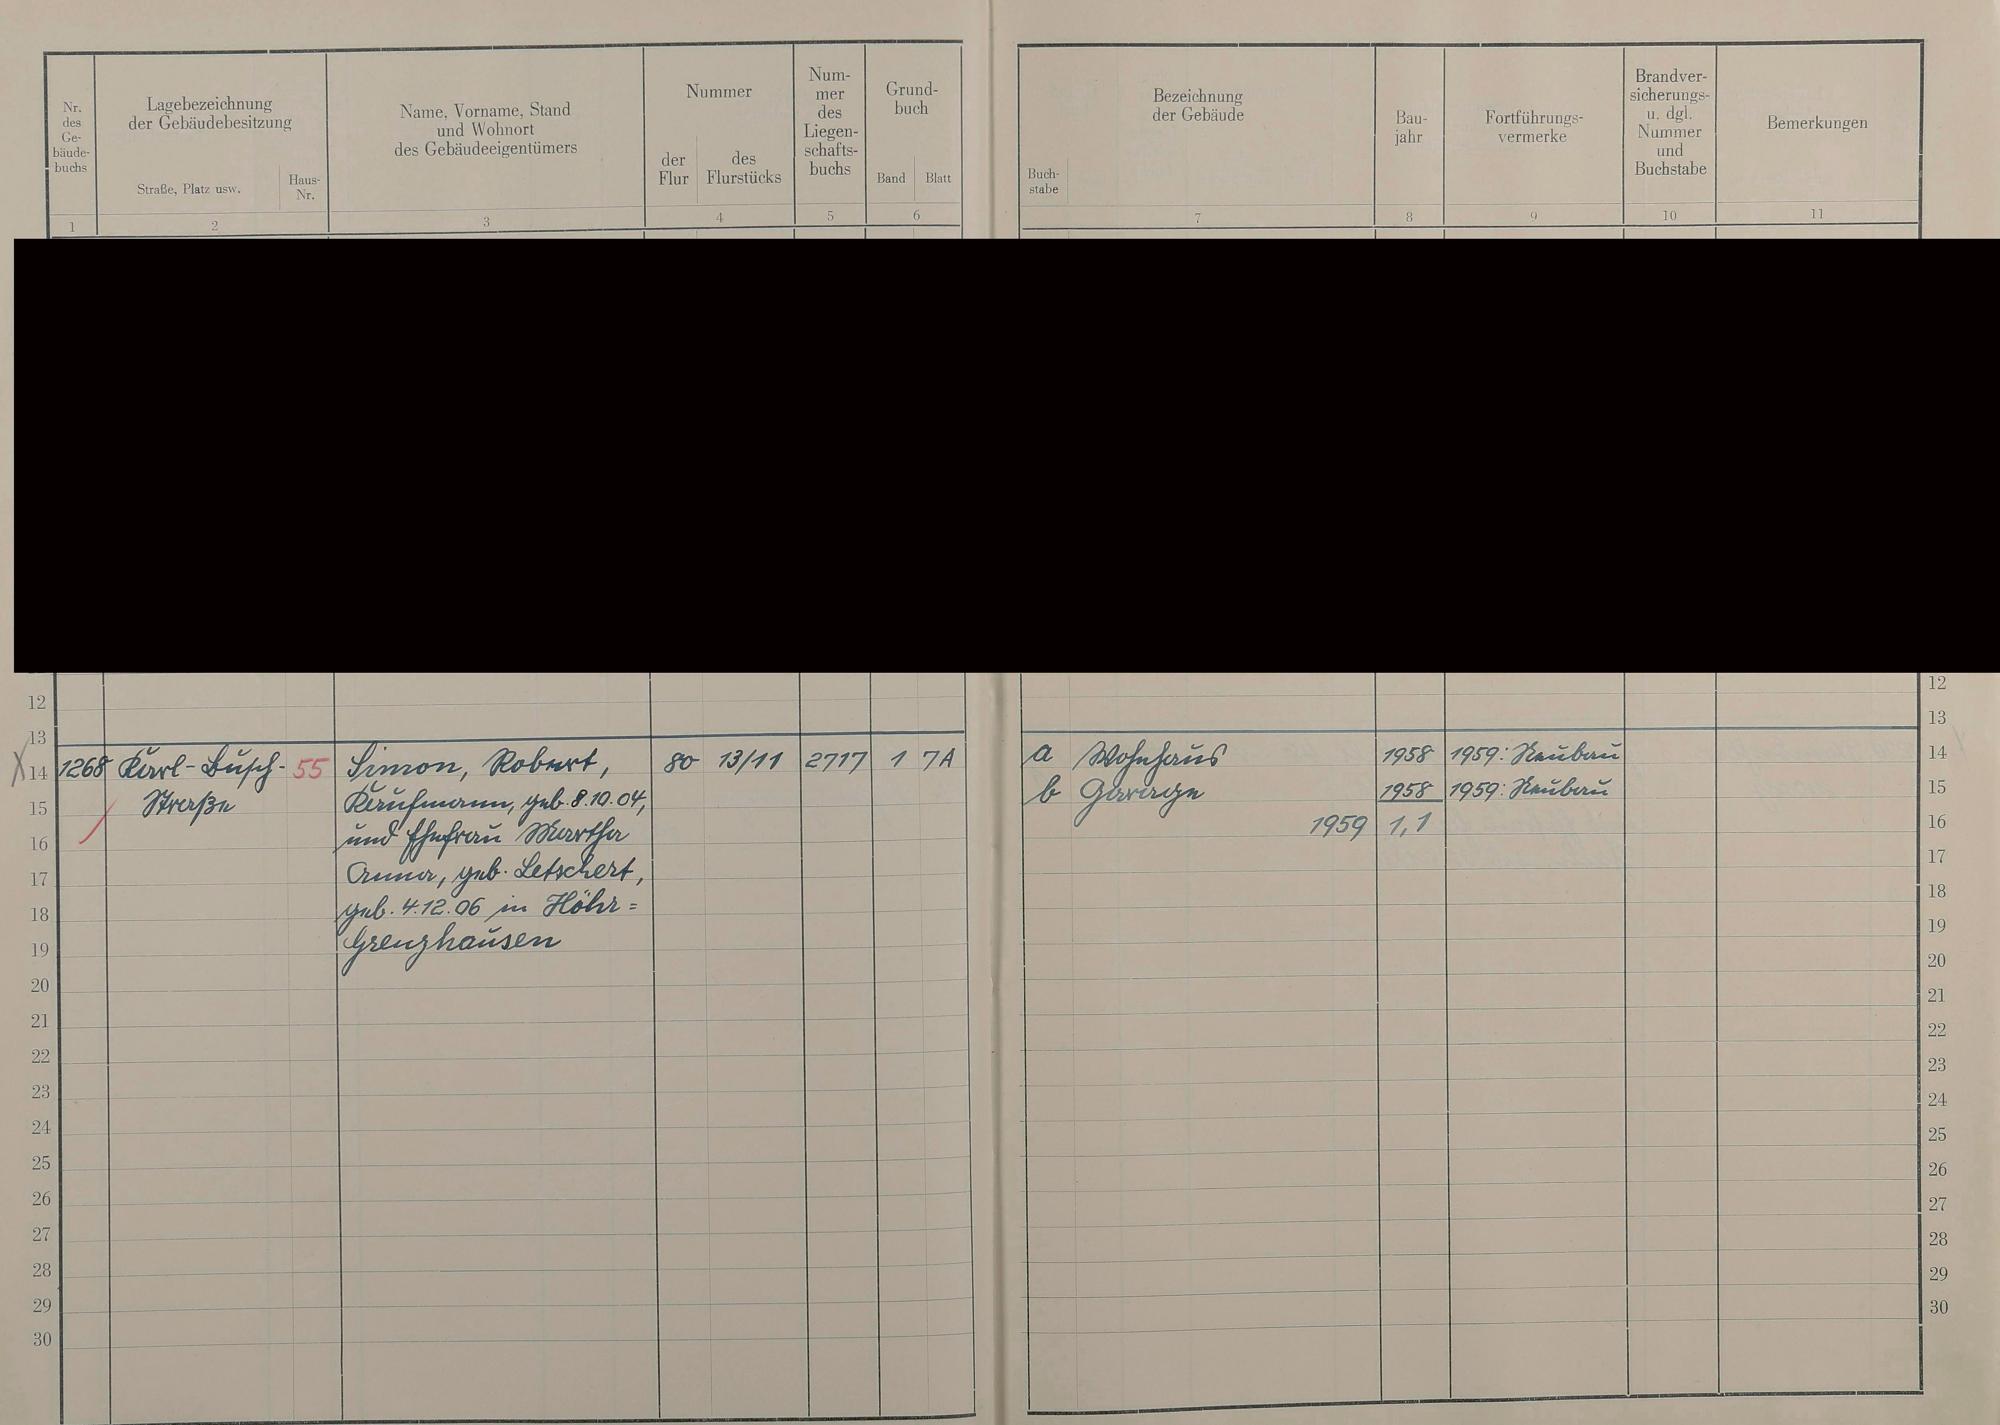 Nr.
des
Ge-
bäude-
buchs
1
Lagebezeichnung
der Gebäudebesitzung
Straße, Platz usw.
Haus-
Nr.
2
Name, Vorname, Stand
und Wohnort
des Gebäudeeigentümers
3
Nummer
der
Flur
des
Flurstücks
4
Num-
mer
des
Liegen-
schafts-
buchs
5
Grund-
buch
Band
Blatt
6
Buch-
stabe
Bezeichnung
der Gebäude
7
Bau-
jahr
8
Fortführungs-
vermerke
9
Brandver-
sicherungs-
u. dgl.
Nummer
und
Buchstabe
10
Bemerkungen
11
12 12
13 13
X 14 1268 Karl-Busch- 55 Simon, Robert, 80 13/11 2717 1 7A a Wohnhaus 1958 1959: Neubau 14
15 Straße Kaufmann, geb. 8.10.04, b Garage 1958 1959: Neubau 15
16 und Ehefrau Martha 1959 1,1 16
17 Anna, geb. Letschert, 17
18 geb. 4.12.06 in Höhr= 18
19 Grenzhausen 19
20 20
21 21
22 22
23 23
24 24
25 25
26 26
27 27
28 28
29 29
30 30